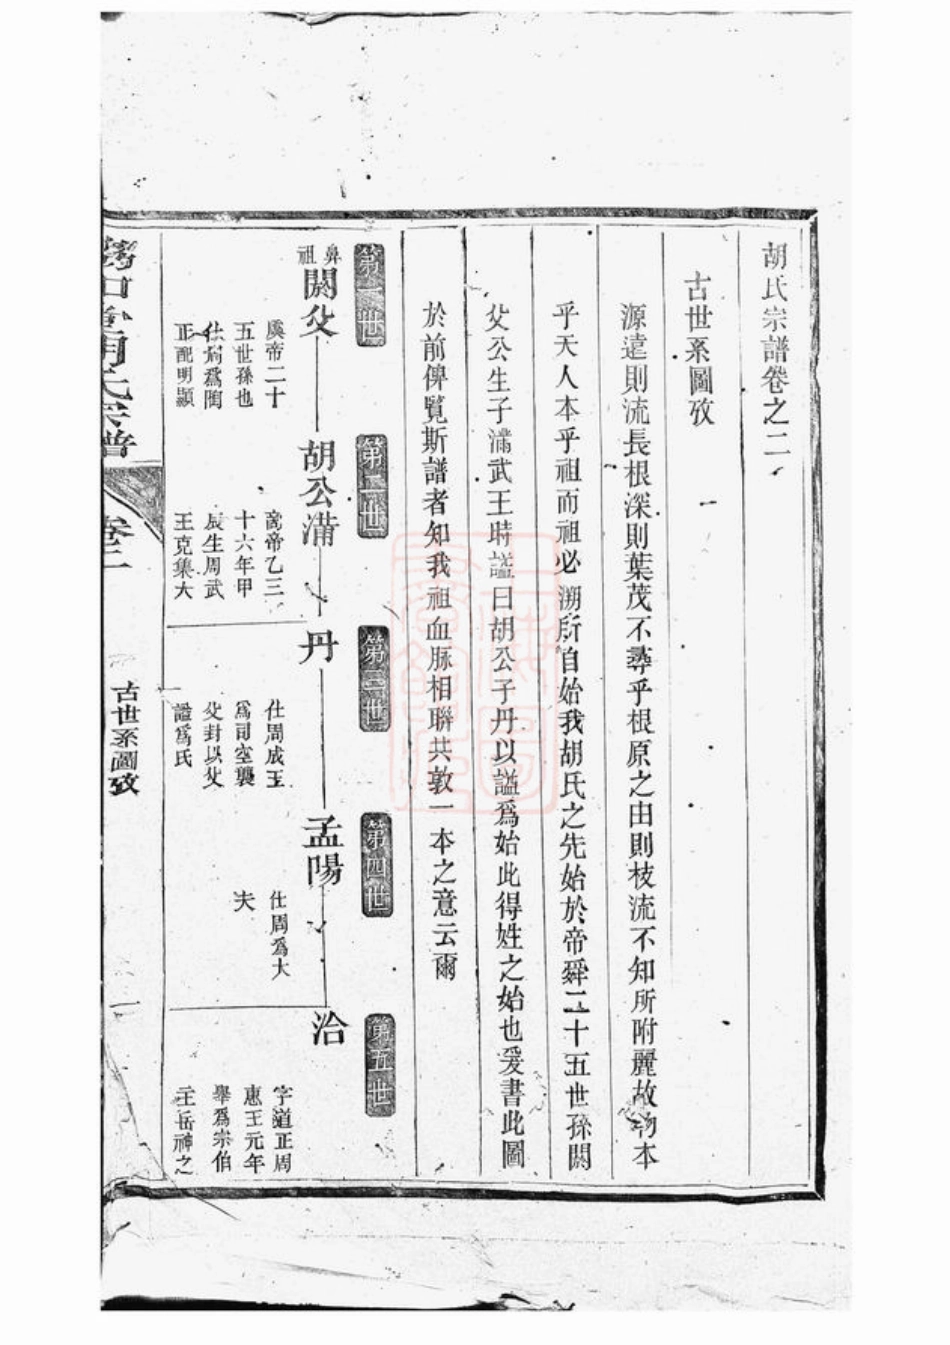 胡氏宗譜卷之二
古世系圖攷
源遠則流長根深則葉茂不尋乎根原之由則枝流不知所附麗故物本
乎天人本乎祖而祖必溯所自始我胡氏之先始於帝舜二十五世孫閼
父公生子滿武王時謚曰胡公子丹以謚爲始此得姓之始也爰書此圖
於前俾覽斯譜者知我祖血脉相聯共敦一本之意云爾
第一世
第二世
第三世
第四世
第五世
鼻祖
閼父
胡公滿
丹
孟陽
洽
虞帝二十
五世孫也
仕周爲陶
正配明顯
商帝乙三
十六年甲
辰生周武
王克集大
仕周成王
爲司空襲
父封以父
謚爲氏
仕周爲大
夫
字道正周
惠王元年
舉爲宗伯
主岳神之
胡氏宗譜
卷二
古世系圖攷
一